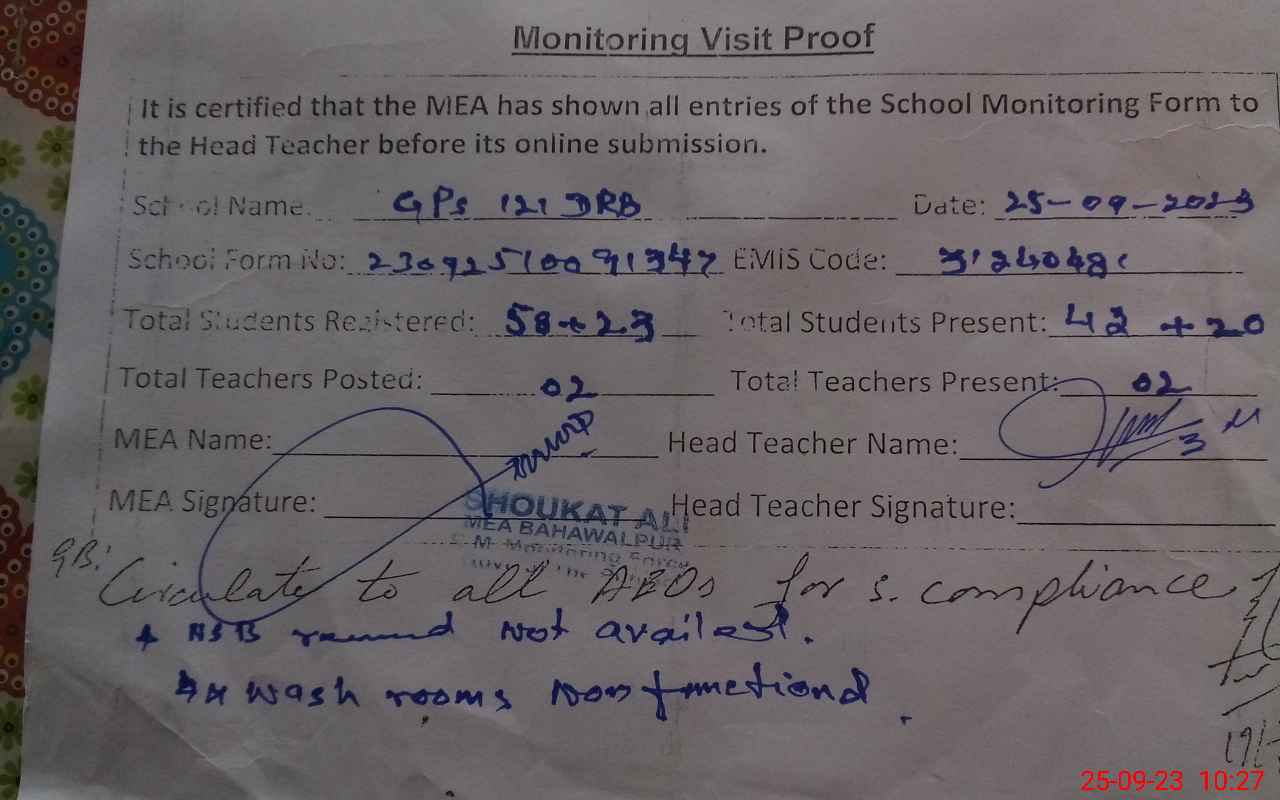 Monitoring Visit Proof
It is certified that the MEA has shown all entries of the School Monitoring Form to
the Head Teacher before its online submission.
School Name: GPS 121 DRB Date: 25-09-2023
School Form No: 23092510091347 EMIS Code:
Total Students Registered: 58+23 Total Students Present: 42 + 20
Total Teachers Posted: 02 Total Teachers Present: 02
MEA Name: Head Teacher Name:
MEA Signature: Head Teacher Signature:
SHOUKAT ALI
MEA BAHAWALPUR
Monitoring Force
Circulate to all AEOs for s. compliance
NSB not
wash rooms non functiond.
25-09-23 10:27